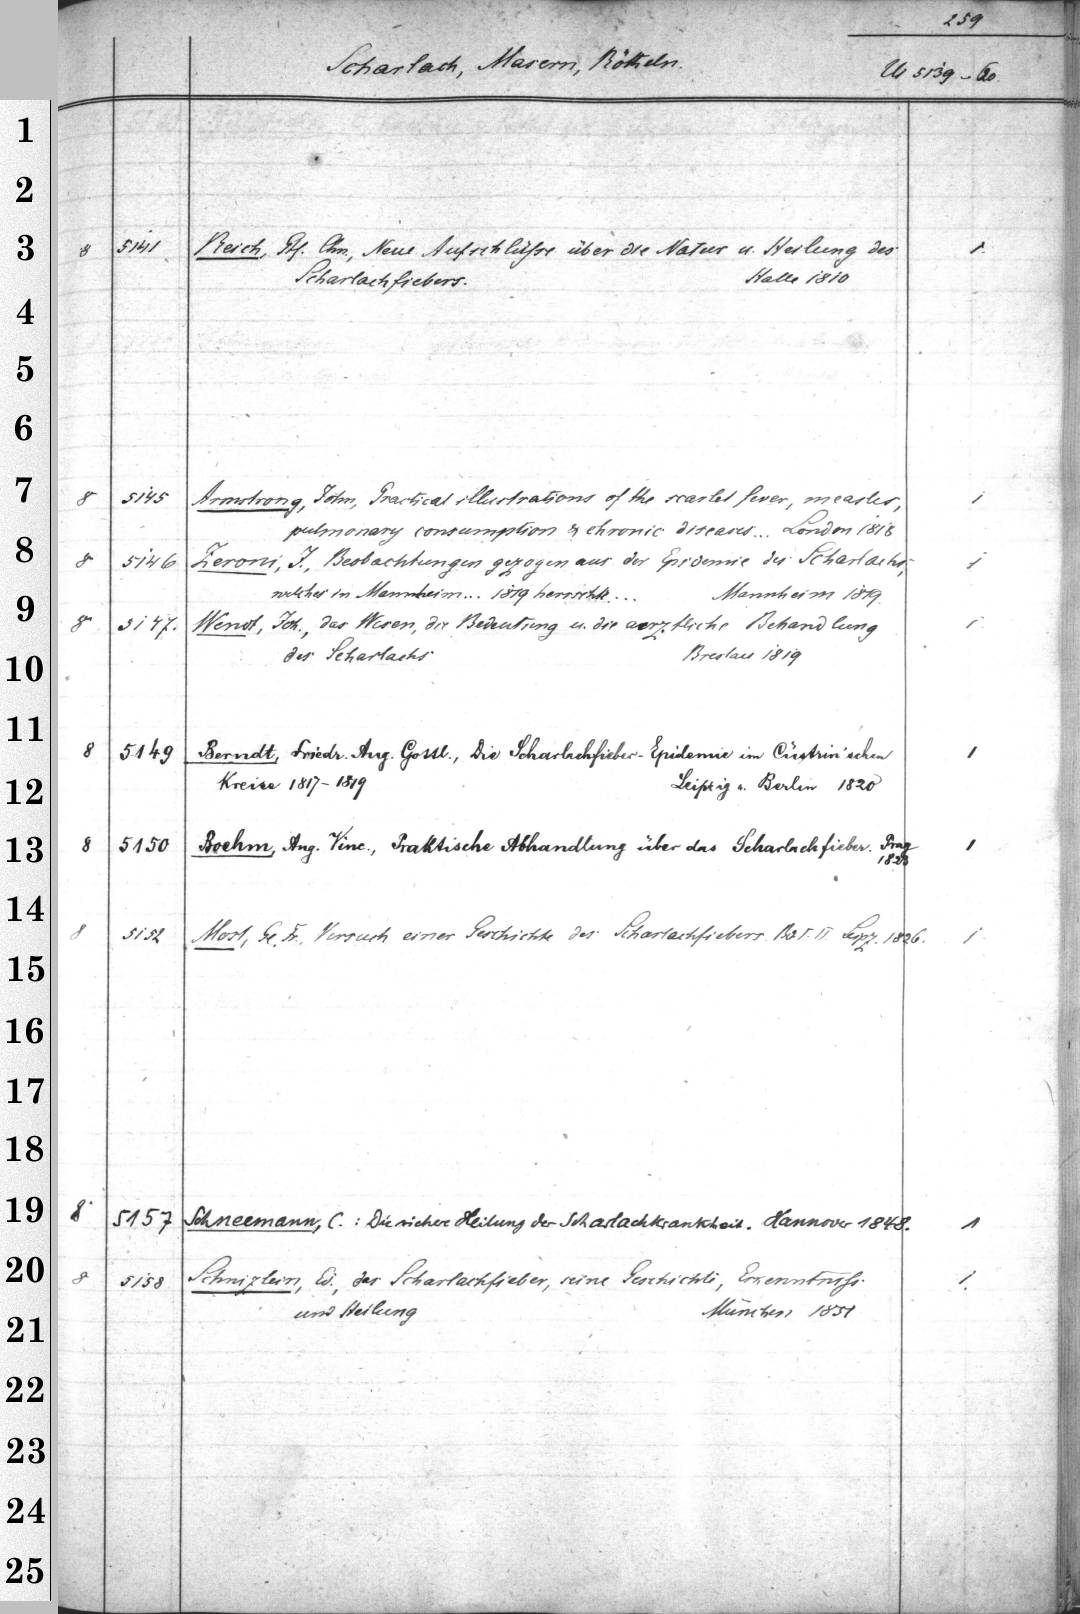 259
Scharlach, Masern, Rötheln. Us 5139-60
1
2
3 8 5141 Reich, Gf. Chn., Neue Aufschlüsse über die Natur u. Heilung des 1.
Scharlachfiebers. Halle 1810
4
5
6
7 8 5145 Armstrong, John, Practical illustrations of the scarlet fever, measles, 1
pulmonary consumption & chronic diseases... London 1818
8 8 5146 Zeroni, J., Beobachtungen gezogen aus der Epidemie des Scharlachs, 1
welches in Mannheim... 1819 herrschte... Mannheim 1819
9 8 5147. Wendt, Joh., das Wesen, die Bedeutung u. die aerztliche Behandlung 1
10 des Scharlachs Breslau 1819
11 8 5149 Berndt, Friedr. Aug. Gottl., Die Scharlachfieber-Epidemie im Cüstrin'schen 1
12 Kreise 1817-1819 Leipzig u. Berlin 1820
13 8 5150 Boehm, Aug. Vinc., Praktische Abhandlung über das Scharlachfieber. Prag 1
1823
14 8 5152 Most, Ge. Fr., Versuch einer Geschichte des Scharlachfiebers Bd I. II Leipz. 1826. 1
15
16
17
18
19 8 5157 Schneemann, C.: Die sichere Heilung der Scharlachkrankheit. Hannover 1848. 1
20 8 5158 Schnizlein, Ed., das Scharlachfieber, seine Geschichte, Erkenntniss 1.
und Heilung München 1851
21
22
23
24
25